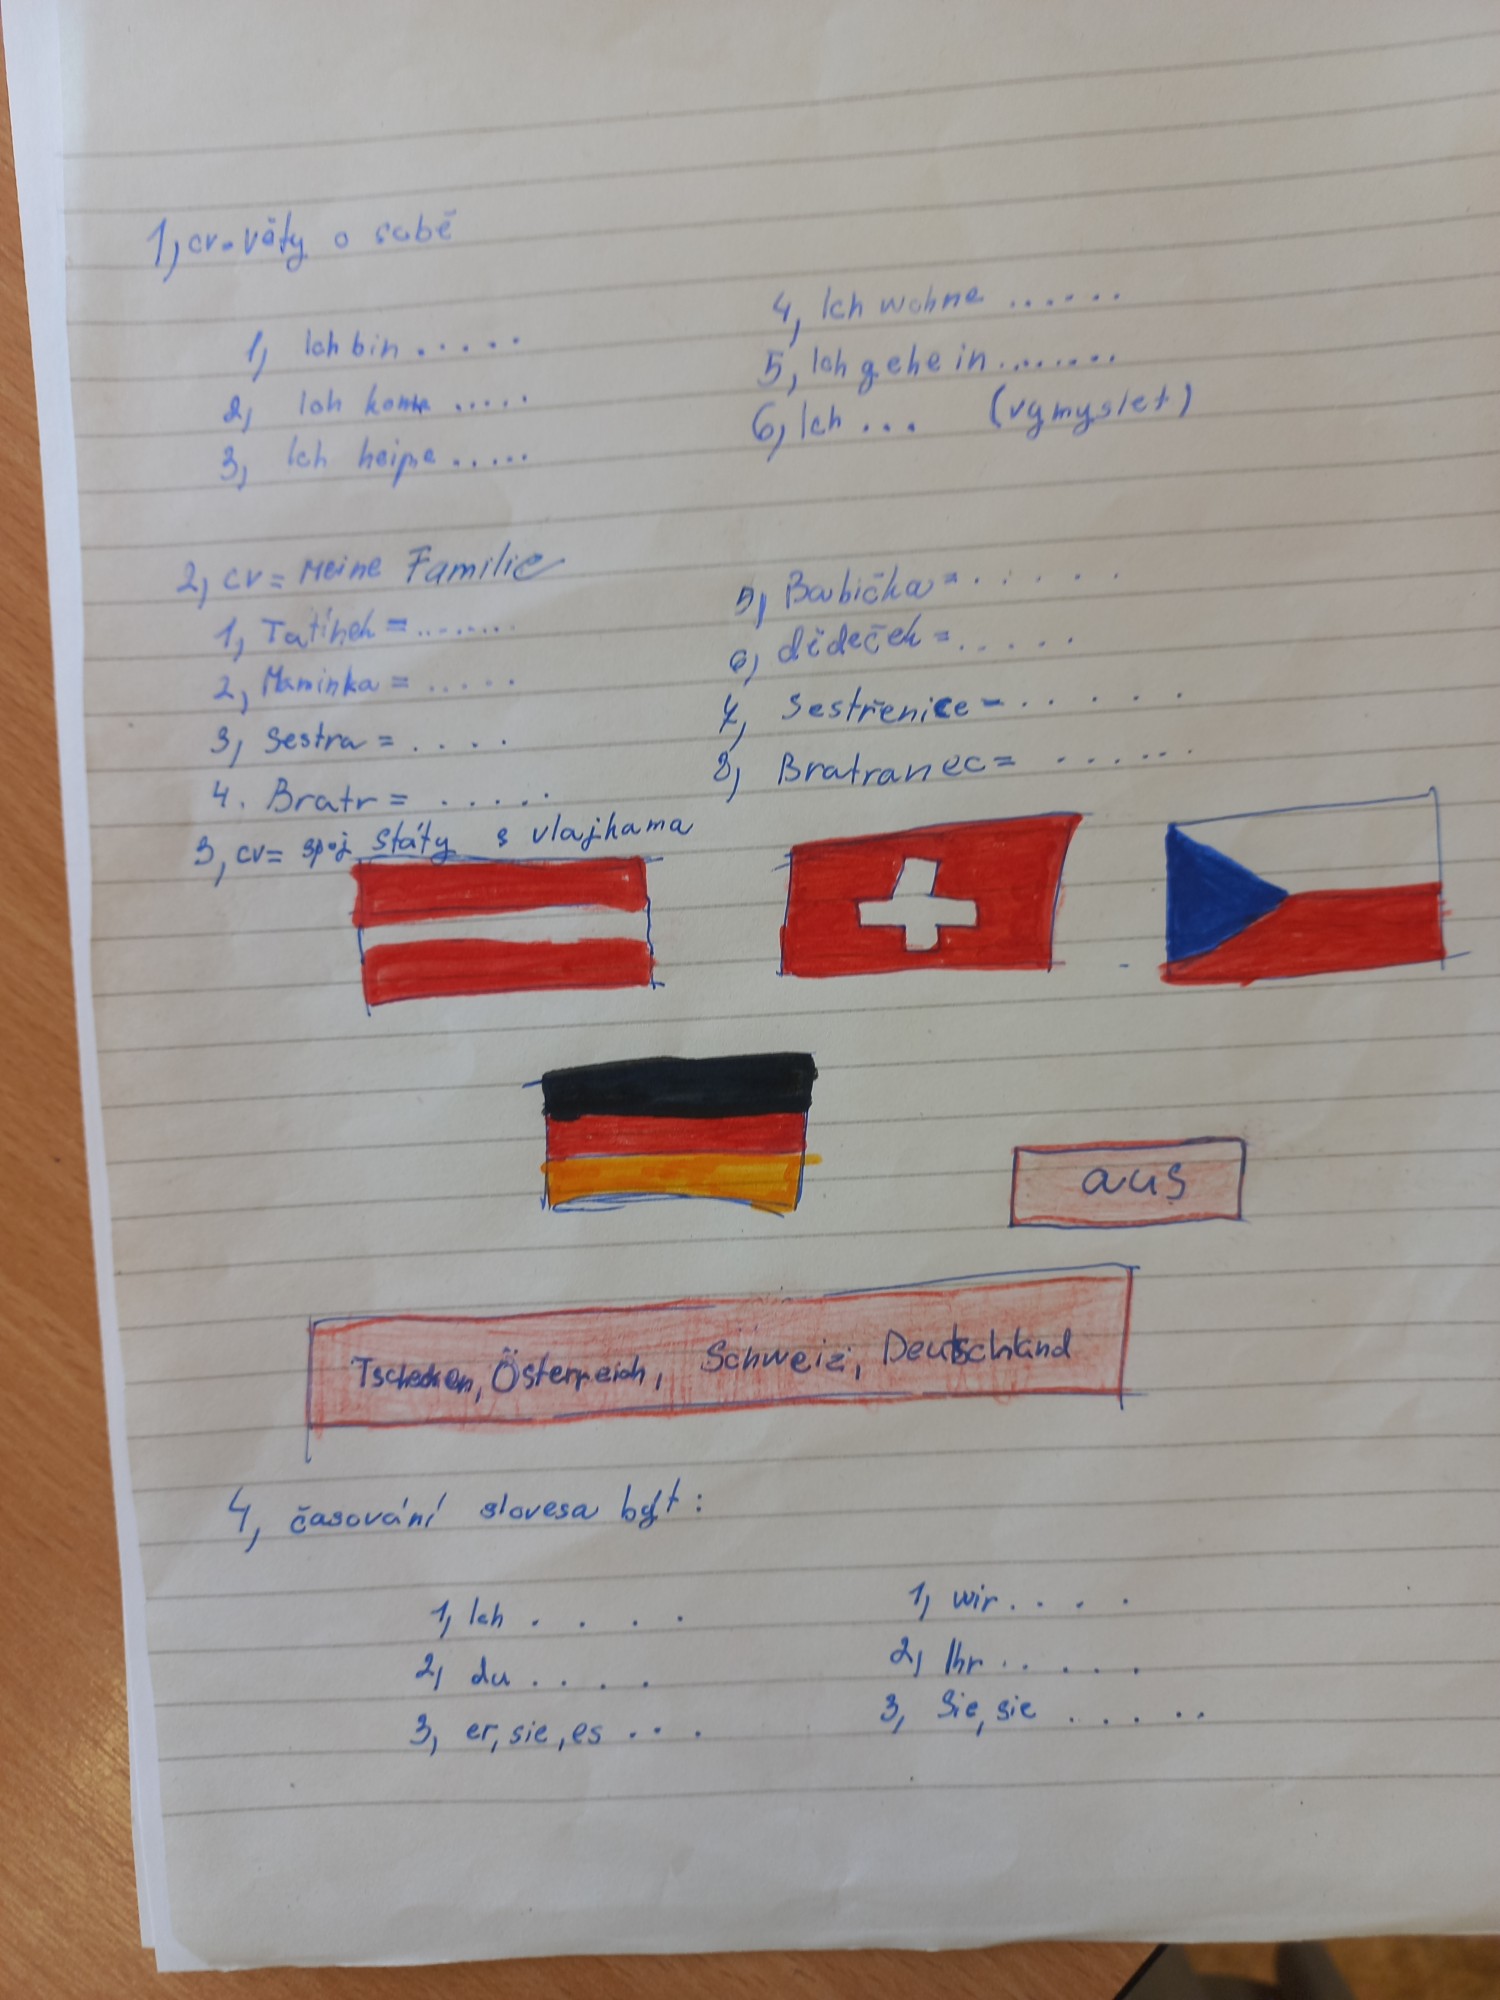 1, cv. věty o sobě
1, Ich bin .....
2, Ich kome .....
3, Ich heiße .....
4, Ich wohne ......
5, Ich gehe in .......
6, Ich ... (vymyslet)
2, cv = Meine Familie
1, Tatínek = .......
2, Maminka = .....
3, Sestra = ....
4. Bratr = .....
5, Babička = .....
6, dědeček = .....
7, Sestřenice = .....
8, Bratranec = ......
3, cv = spoj státy s vlajkama
aus
Tschechien, Österreich, Schweiz, Deutschland
4, časování slovesa být:
1, Ich ....
2, du ....
3, er, sie, es ...
1, wir ....
2, Ihr .....
3, Sie, sie .....